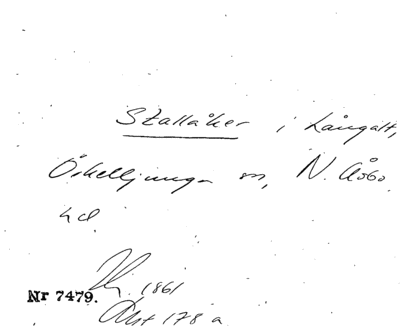 Stallåker i Långalt,
Örkelljunga sn, N. Åsbo
hd
1861
Nr 7479.
Akt 178 a